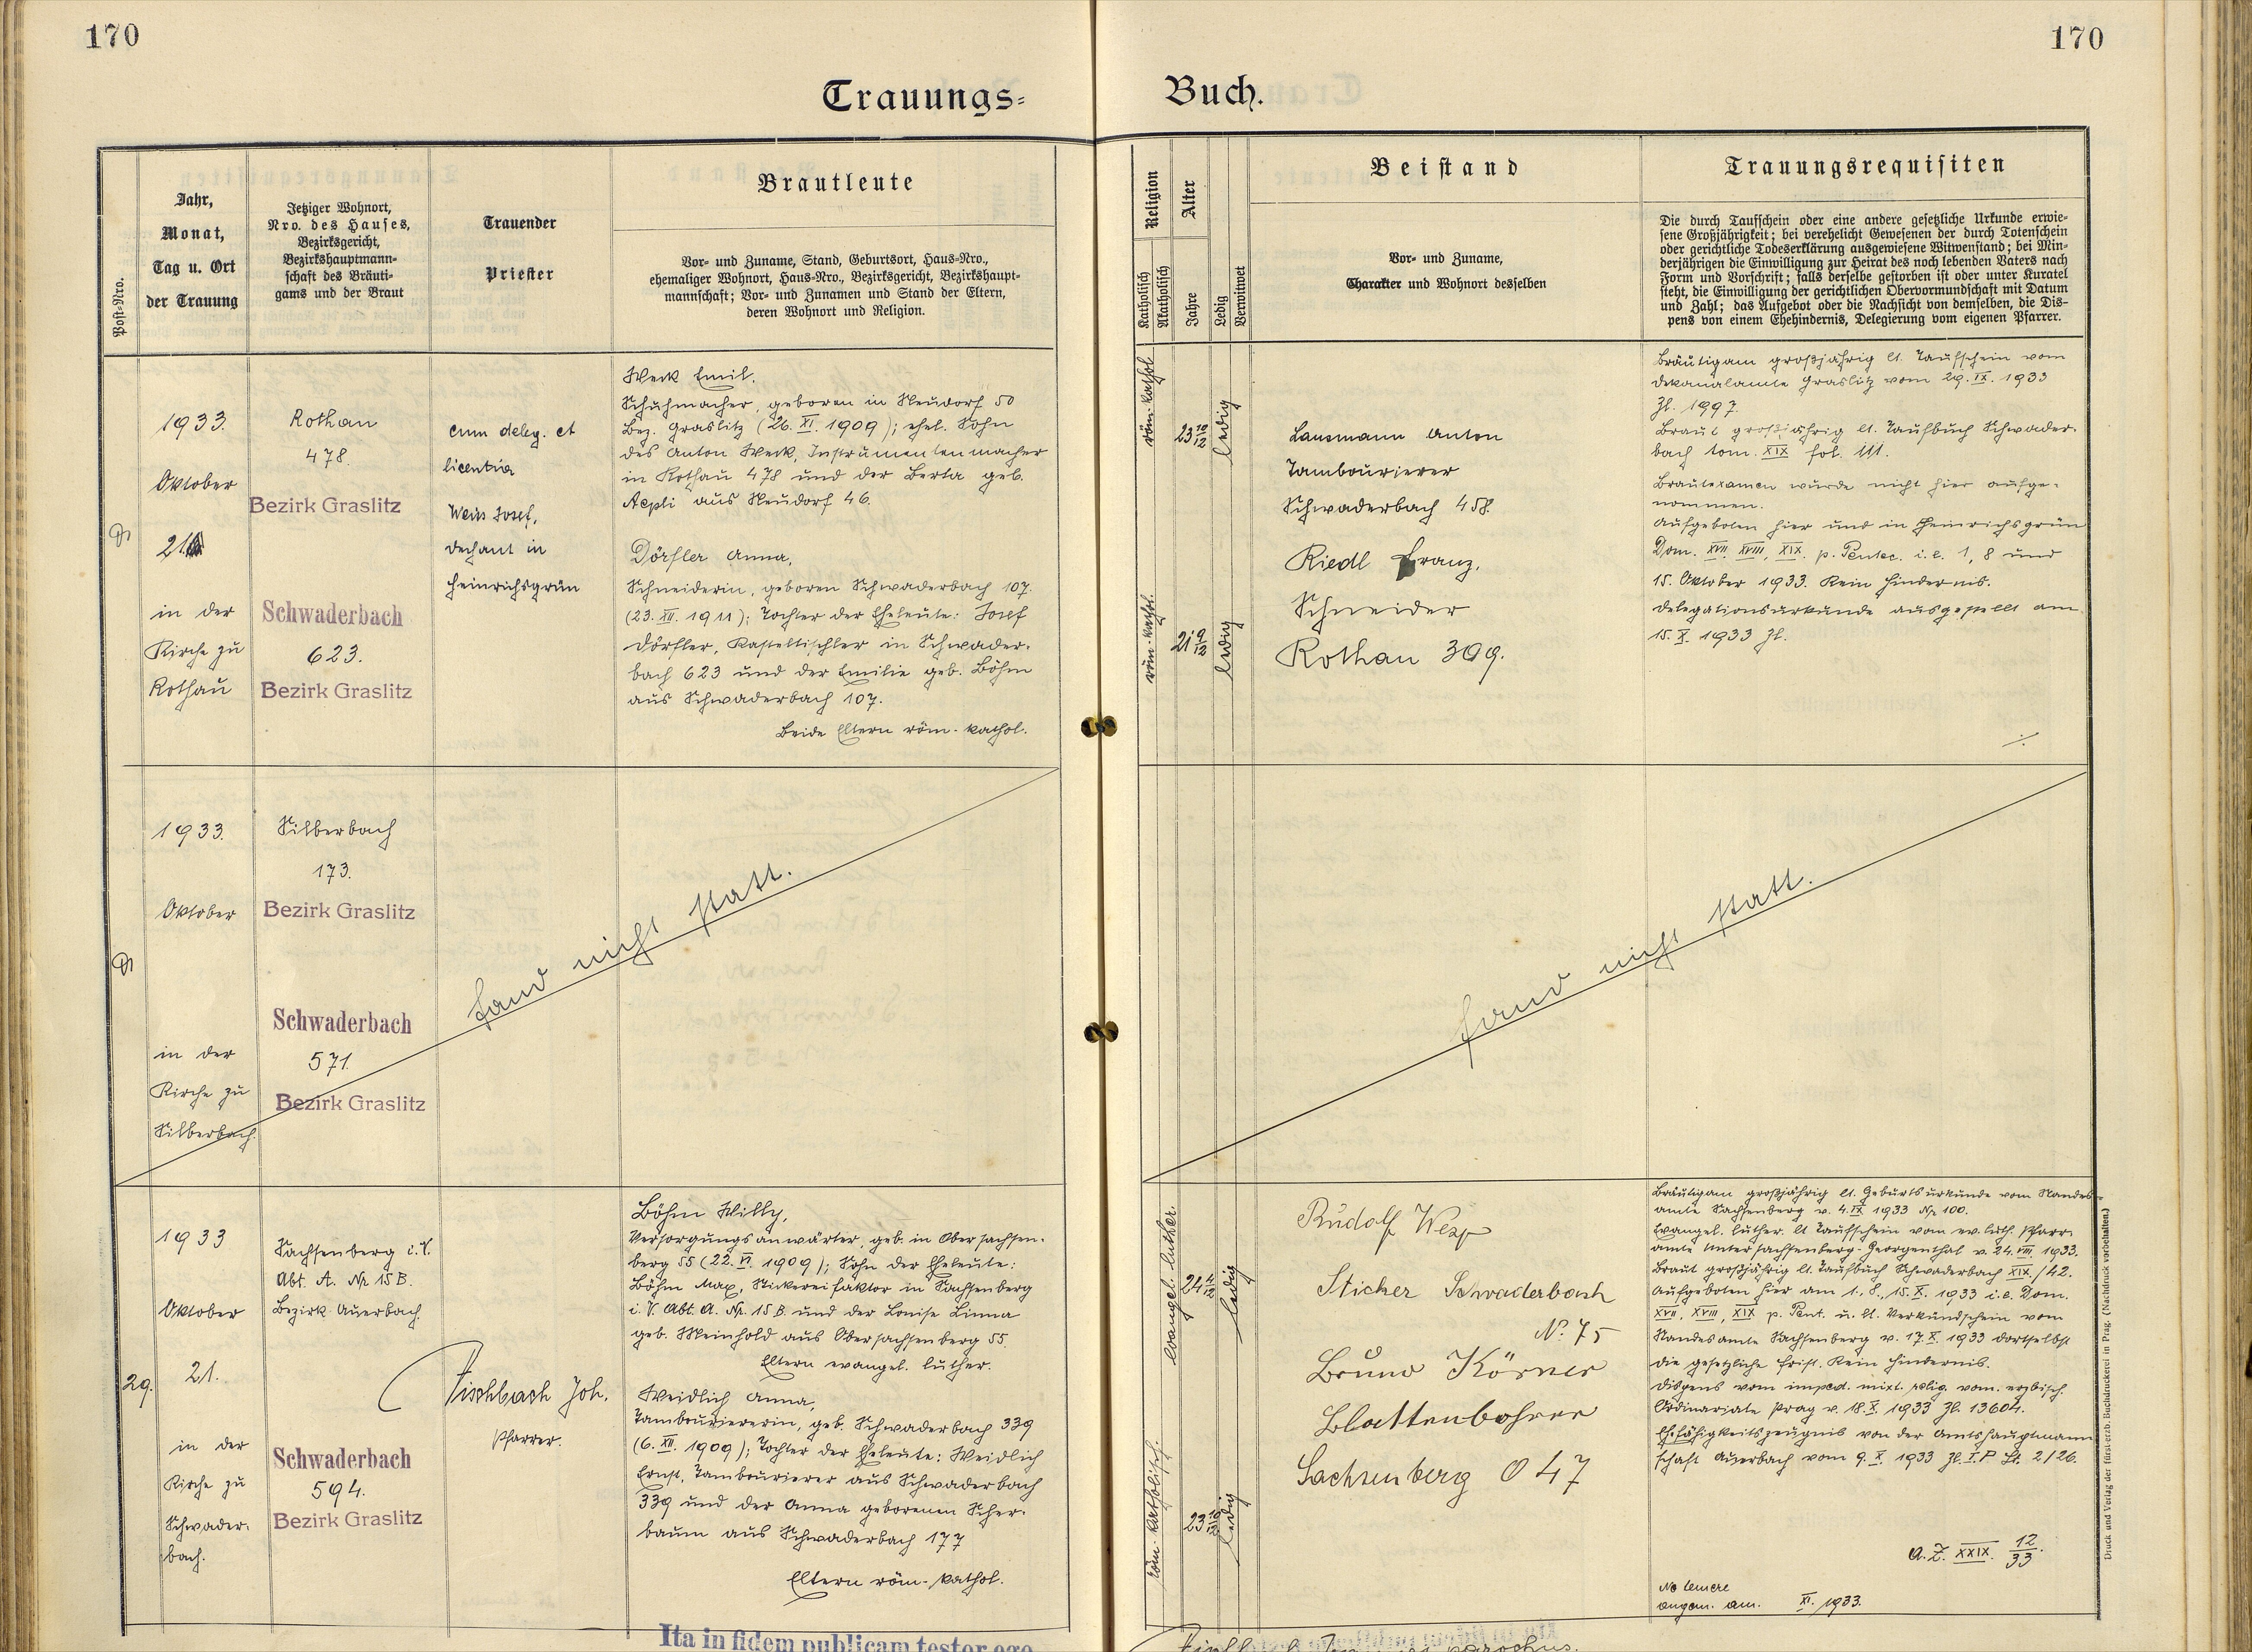 170
170
Trauungs=
Buch.
Post-Nro.
Jahr,
Monat,
Tag u. Ort
der Trauung
Jetziger Wohnort,
Nro. des Hauses,
Bezirksgericht,
Bezirkshauptmann-
schaft des Bräuti-
gams und der Braut
Trauender
Priester
Brautleute
Vor- und Zuname, Stand, Geburtsort, Haus-Nro.,
ehemaliger Wohnort, Haus-Nro., Bezirksgericht, Bezirkshaupt-
mannschaft; Vor- und Zunamen und Stand der Eltern,
deren Wohnort und Religion.
Religion
Katholisch
Akatholisch
Alter
Jahre
Ledig
Verwitwet
Beistand
Vor- und Zuname,
Charakter und Wohnort desselben
Trauungsrequisiten
Die durch Taufschein oder eine andere gesetzliche Urkunde erwie-
sene Großjährigkeit; bei verehelicht Gewesenen der durch Totenschein
oder gerichtliche Todeserklärung ausgewiesene Witwenstand; bei Min-
derjährigen die Einwilligung zur Heirat des noch lebenden Vaters nach
Form und Vorschrift; falls derselbe gestorben ist oder unter Kuratel
steht, die Einwilligung der gerichtlichen Obervormundschaft mit Datum
und Zahl; das Aufgebot oder die Nachsicht von demselben, die Dis-
pens von einem Ehehindernis, Delegierung vom eigenen Pfarrer.
1933.
Oktober
21
in der
Kirche zu
Rothau
Rothau
478.
Bezirk Graslitz
Schwaderbach
623.
Bezirk Graslitz
cum deleg. et
licentia
Weiss Josef,
Dechant in
Heinrichsgrün
Werk Emil.
Schuhmacher, geboren in Neudorf 50
Bez. Graslitz (26. XI. 1909); ehel. Sohn
des Anton Werk, Instrumentenmacher
in Rothau 478 und der Berta geb.
Aepli aus Neudorf 46.
Dörfler Anna,
Schneiderin, geboren Schwaderbach 107.
(23. XII. 1911); Tochter der Eheleute: Josef
Dörfler, Kasteltischler in Schwader-
bach 623 und der Emilie geb. Böhm
aus Schwaderbach 107.
Beide Eltern röm.-kathol.
röm.-kathol
23 10/12
ledig
röm.-kathol.
21 9/12
ledig
Lausmann Anton
Tambourierer
Schwaderbach 458.
Riedl Franz.
Schneider
Rothau 309.
Bräutigam großjährig lt. Taufschein vom
Dekanalamte Graslitz vom 29. IX. 1933
Zl. 1997.
Braut großjährig lt. Taufbuch Schwader-
bach tom. XIX fol. 111.
Brautexamen wurde nicht hier aufge-
nommen.
Aufgeboten hier und in Heinrichsgrün
Dom. XVII, XVIII, XIX. p. Pentec. i.e. 1, 8 und
15. Oktober 1933. Kein Hindernis.
Delegationsurkunde ausgestellt am
15. X. 1933 Zl.
1933.
Oktober
in der
Kirche zu
Silberbach.
Silberbach
173.
Bezirk Graslitz
Schwaderbach
571.
Bezirk Graslitz
fand nicht statt.
fand nicht statt.
29.
1933
Oktober
21.
in der
Kirche zu
Schwader-
bach.
Sachsenberg i. V.
Abt. A. Nr 15 B.
Bezirk Auerbach.
Schwaderbach
594.
Bezirk Graslitz
Fischbach Joh.
Pfarrer.
Böhm Willy,
Versorgungsanwärter, geb. in Obersachsen-
berg 55 (22. VI. 1909); Sohn der Eheleute:
Böhm Max, Stickereifaktor in Sachsenberg
i. V. Abt. A. Nr. 15 B. und der Louise Linna
geb. Meinhold aus Obersachsenberg 55.
Eltern evangel. luther.
Weidlich Anna,
Tambouriererin, geb. Schwaderbach 339
(6. XII. 1909); Tochter der Eheleute: Weidlich
Ernst, Tambourierer aus Schwaderbach
339 und der Anna geborenen Scher-
baum aus Schwaderbach 177
Eltern röm.-kathol.
evangel. luther.
24 4/12
ledig
röm. katholisch.
23 10/12
ledig
Rudolf
Sticker Schwaderbach
No. 75
Bruno Körner
Blattenbohrer
Sachsenberg O 47
Bräutigam großjährig lt. Geburtsurkunde vom Standes-
amte Sachsenberg v. 4. IX. 1933 Nr 100.
Evangel. luther. lt Taufschein vom ev. luth. Pfarr-
amte Untersachsenberg-Georgenthal v. 24. VIII. 1933.
Braut großjährig lt. Taufbuch Schwaderbach XIX./42.
Aufgeboten hier am 1., 8., 15. X. 1933 i.e. Dom.
XVII, XVIII, XIX p. Pent. u. lt. Verkündschein vom
Standesamte Sachsenberg v. 17. X. 1933 dortselbst
die gesetzliche Frist. Kein Hindernis.
Dispens vom imped. mixt. relig. vom. erzbisch.
Ordinariate Prag v. 18. X. 1933 Zl. 13604.
Ehefähigkeitszeugnis von der Amtshauptmann
schaft Auerbach vom 9. X. 1933 Zl. I. P. St. 2/26.
a. Z. XXIX. 12/33.
Ne temere
angem. am. XI. 1933.
Druck und Verlag der fürst-erzb. Buchdruckerei in Prag. (Nachdruck vorbehalten.)
Ita in fidem publicam testor ego
parochus.